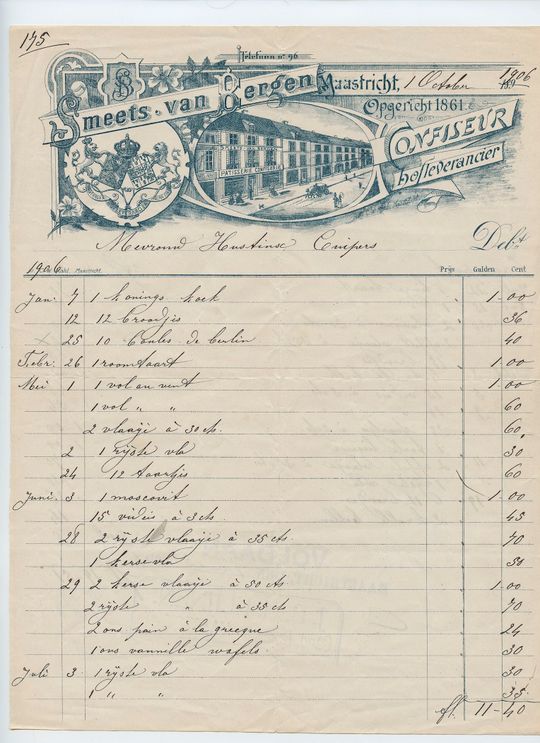 175
Telefoon nº 96
SB
Smeets-van Bergen
Maastricht, 1 October 1906
Opgericht 1861.
Confiseur
hofleverancier
PATISSERIE CONFISERIE
Mevrouw Hustinx Cuipers Debt.
1906 Maastricht. Prijs Gulden Cent
Jan: 7 1 konings koek 1-00
12 12 broodjis 36
x 25 10 boules de berlin 40
Febr. 26 1 roomtaart 1-00
Mei 1 1 vol au vent 1-00
1 vol " " 60
2 vlaaije à 30 cts. 60
2 1 rijste vla 30
24 12 taartjis 60
Juni 3 1 moscovit 1-00
15 videis à 3 cts 45
28 2 rijste vlaaije à 35 cts. 70
1 kerse vla 50
29 2 kerse vlaaije à 50 cts 1-00
2 rijste " à 35 cts 70
2 ons pain à la grecque 24
1 ons vannille wafels 30
Juli 3 1 rijste vla 30
1 " " 35
fl. 11-40